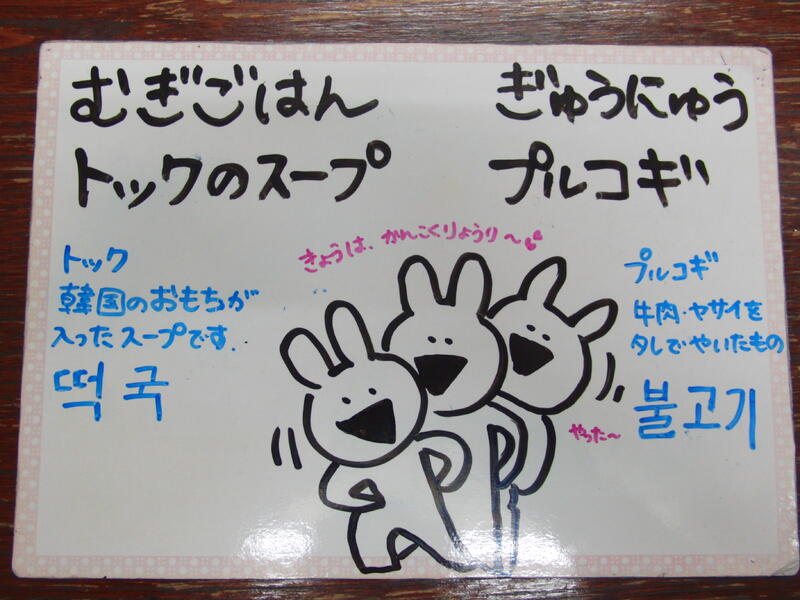 むぎごはん
ぎゅうにゅう
トックのスープ
プルコギ
きょうは、かんこくりょうり〜
トック
韓国のおもちが
入ったスープです.
떡국
プルコギ
牛肉・ヤサイを
タレでやいたもの
불고기
やった〜